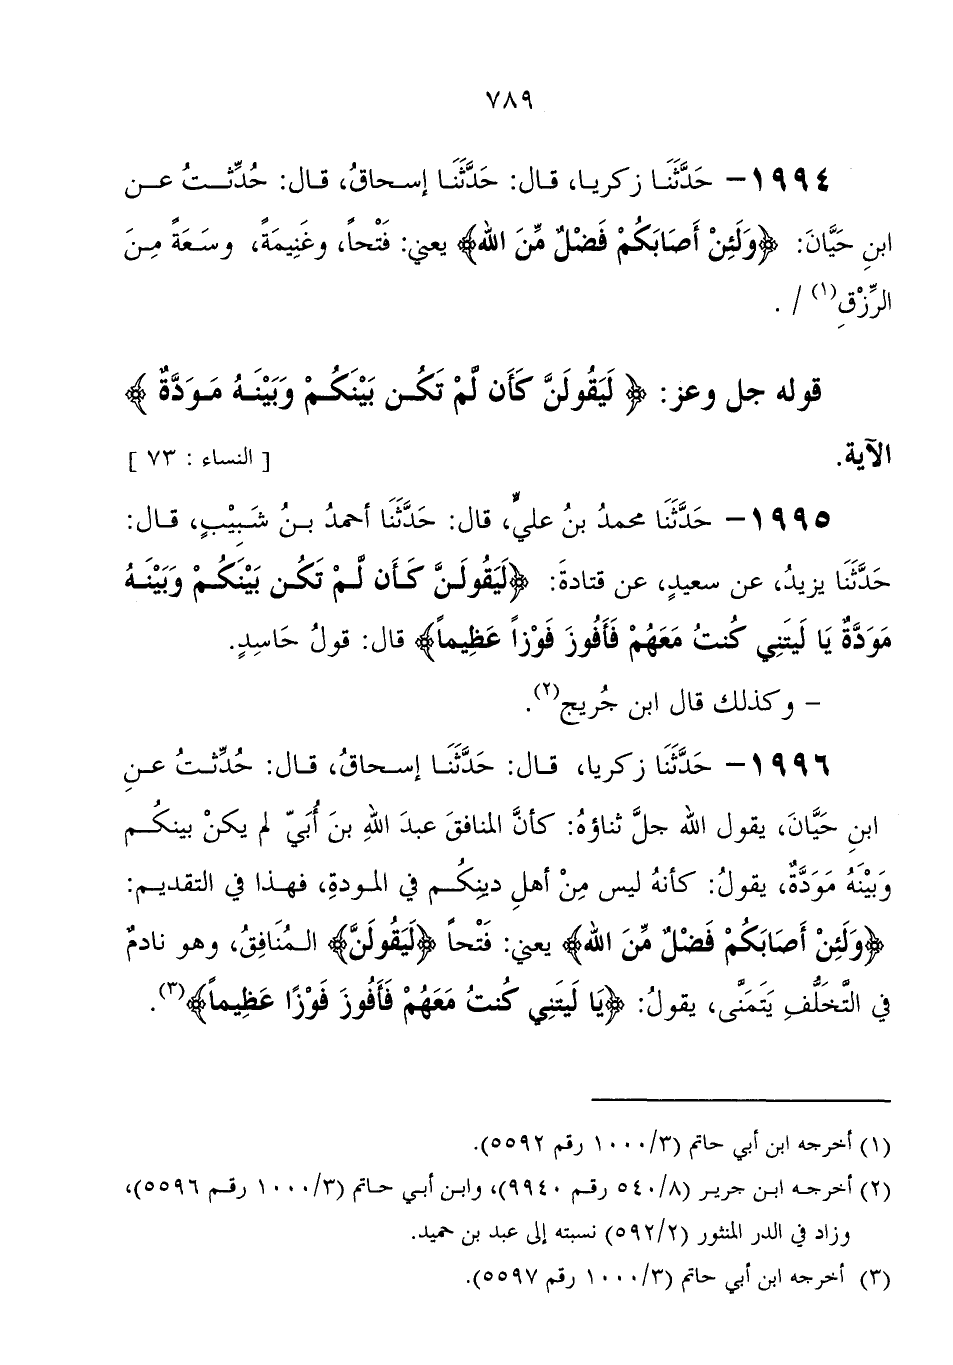 ٧٨٩
١٩٩٤- حَدَّثَنَا زكريا، قال: حَدَّثَنَا إسحاقُ، قال: حُدِّثْتُ عن
ابنِ حَيَّانَ: ﴿وَلَئِنْ أَصَابَكُمْ فَضْلٌ مِّنَ الله﴾ يعني: فَتْحاً، وغَنِيمَةً، وسَعَةً مِنَ
الرِّزْقِ(١) / .
قوله جل وعز: ﴿ لَيَقُولَنَّ كَأَن لَّمْ تَكُن بَيْنَكُمْ وَبَيْنَهُ مَوَدَّةٌ ﴾
الآية. [ النساء : ٧٣ ]
١٩٩٥- حَدَّثَنَا محمدُ بنُ عليٍّ، قال: حَدَّثَنَا أحمدُ بنُ شَبِيْبٍ، قال:
حَدَّثَنَا يزيدُ، عن سعيدٍ، عن قتادةَ: ﴿لَيَقُولَنَّ كَأَن لَّمْ تَكُن بَيْنَكُمْ وَبَيْنَهُ
مَوَدَّةٌ يَا لَيتَنِي كُنتُ مَعَهُمْ فَأَفُوزَ فَوْزاً عَظِيماً﴾ قال: قولُ حَاسِدٍ.
- وكذلك قال ابن جُريج(٢).
١٩٩٦- حَدَّثَنَا زكريا، قال: حَدَّثَنَا إسحاقُ، قال: حُدِّثْتُ عنِ
ابنِ حَيَّانَ، يقول الله جلَّ ثناؤهُ: كأنَّ المنافقَ عبدَ اللهِ بنَ أُبَيّ لم يكنْ بينكُم
وَبيْنَهُ مَوَدَّةٌ، يقولُ: كأنهُ ليس مِنْ أهلِ دينِكُم في المودةِ، فهذا في التقديم:
﴿وَلَئِنْ أَصَابَكُمْ فَضْلٌ مِّنَ الله﴾ يعني: فَتْحاً ﴿لَيَقُولَنَّ﴾ المُنَافِقُ، وهو نادمٌ
في التَّخَلُّفِ يَتَمَنَّى، يقولُ: ﴿يَا لَيتَنِي كُنتُ مَعَهُمْ فَأَفُوزَ فَوْزًا عَظِيماً﴾(٣).
(١) أخرجه ابن أبي حاتم (١٠٠٠/٣ رقم ٥٥٩٢).
(٢) أخرجه ابن جرير (٥٤٠/٨ رقم ٩٩٤٠)، وابن أبي حاتم (١٠٠٠/٣ رقم ٥٥٩٦)،
وزاد في الدر المنثور (٥٩٢/٢) نسبته إلى عبد بن حميد.
(٣) أخرجه ابن أبي حاتم (١٠٠٠/٣ رقم ٥٥٩٧).